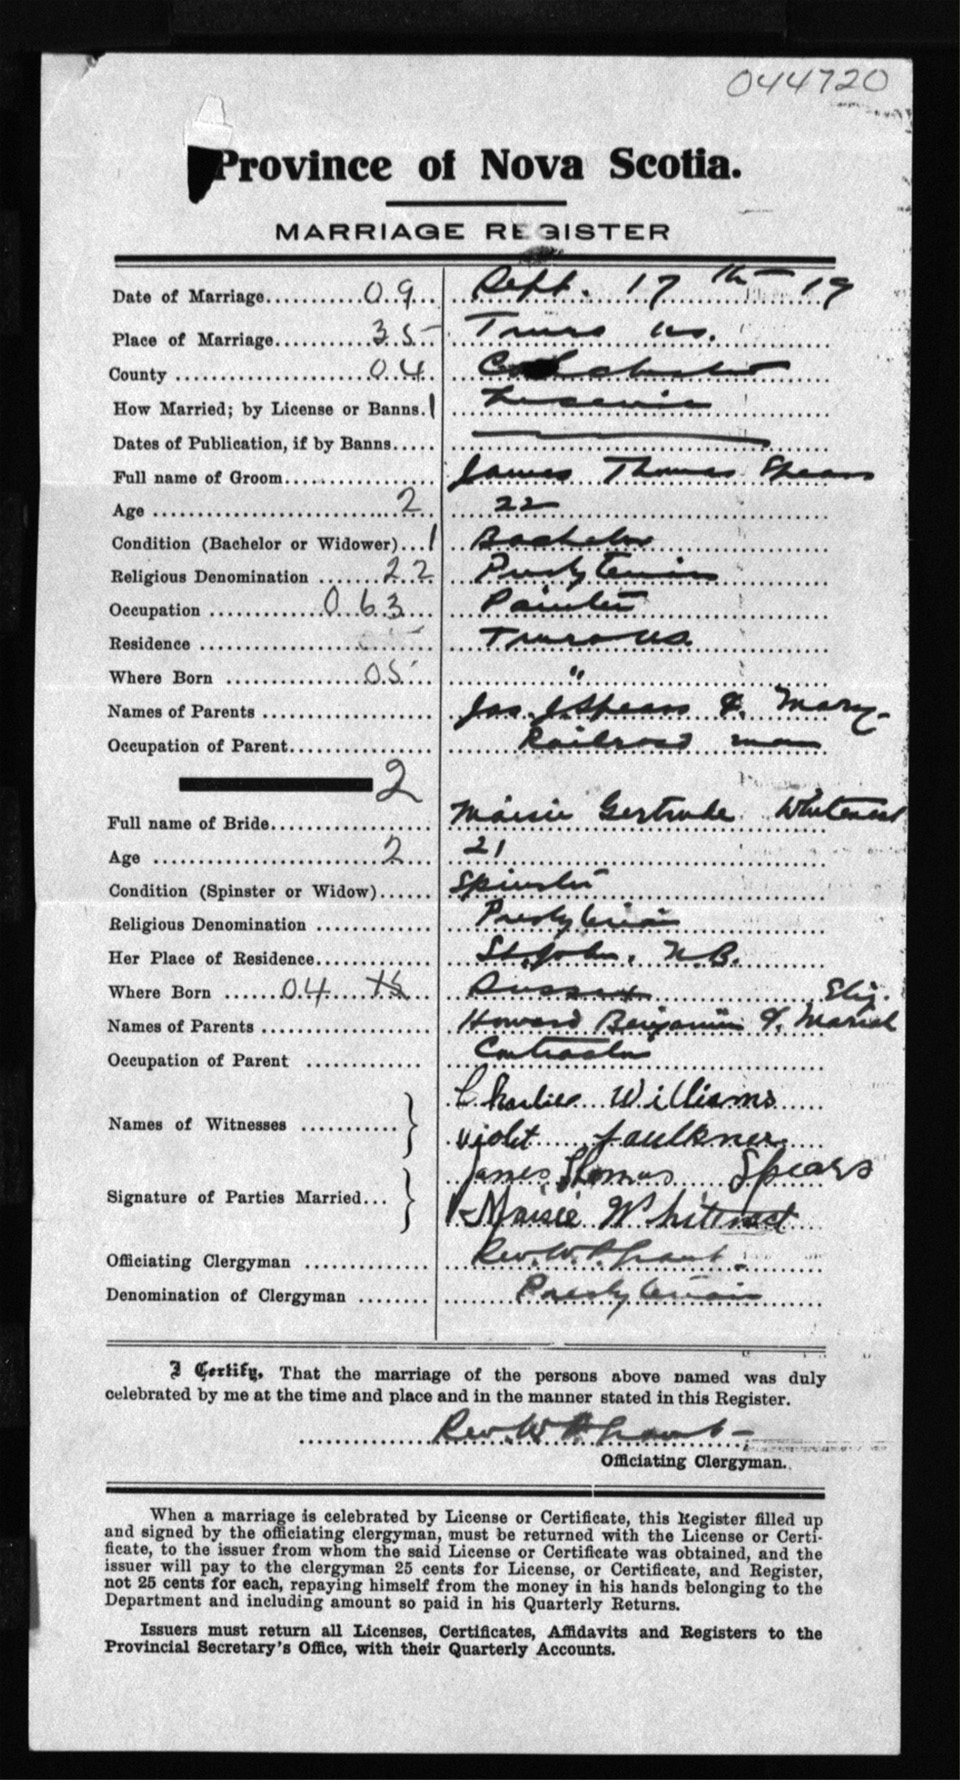 044720
Province of Nova Scotia.
MARRIAGE REGISTER
Date of Marriage 09 Sept. 17th 19
Place of Marriage 35 Truro
County 04 Colchester
How Married; by License or Banns. 1 License
Dates of Publication, if by Banns
Full name of Groom James Thomas Spears
Age 2 22
Condition (Bachelor or Widower) 1 Bachelor
Religious Denomination 22 Presbyterian
Occupation 063 Painter
Residence Truro
Where Born 05 "
Names of Parents Jas. J. Spears & Mary
Occupation of Parent Railroad man
2
Full name of Bride Maisie Gertrude
Age 2 21
Condition (Spinster or Widow) Spinster
Religious Denomination Presbyterian
Her Place of Residence St. John. N.B.
Where Born 04 Sussex
Eliz.
Names of Parents Howard Benjamin &
Occupation of Parent Contractor
Names of Witnesses } Charlie Williams
Violet Faulkner
Signature of Parties Married } James Thomas Spears
Maisie
Officiating Clergyman Rev. W. P. Grant
Denomination of Clergyman Presbyterian
I Certify, That the marriage of the persons above named was duly
celebrated by me at the time and place and in the manner stated in this Register.
Rev. W P Grant
Officiating Clergyman.
When a marriage is celebrated by License or Certificate, this Register filled up
and signed by the officiating clergyman, must be returned with the License or Certi-
ficate, to the issuer from whom the said License or Certificate was obtained, and the
issuer will pay to the clergyman 25 cents for License, or Certificate, and Register,
not 25 cents for each, repaying himself from the money in his hands belonging to the
Department and including amount so paid in his Quarterly Returns.
Issuers must return all Licenses, Certificates, Affidavits and Registers to the
Provincial Secretary's Office, with their Quarterly Accounts.